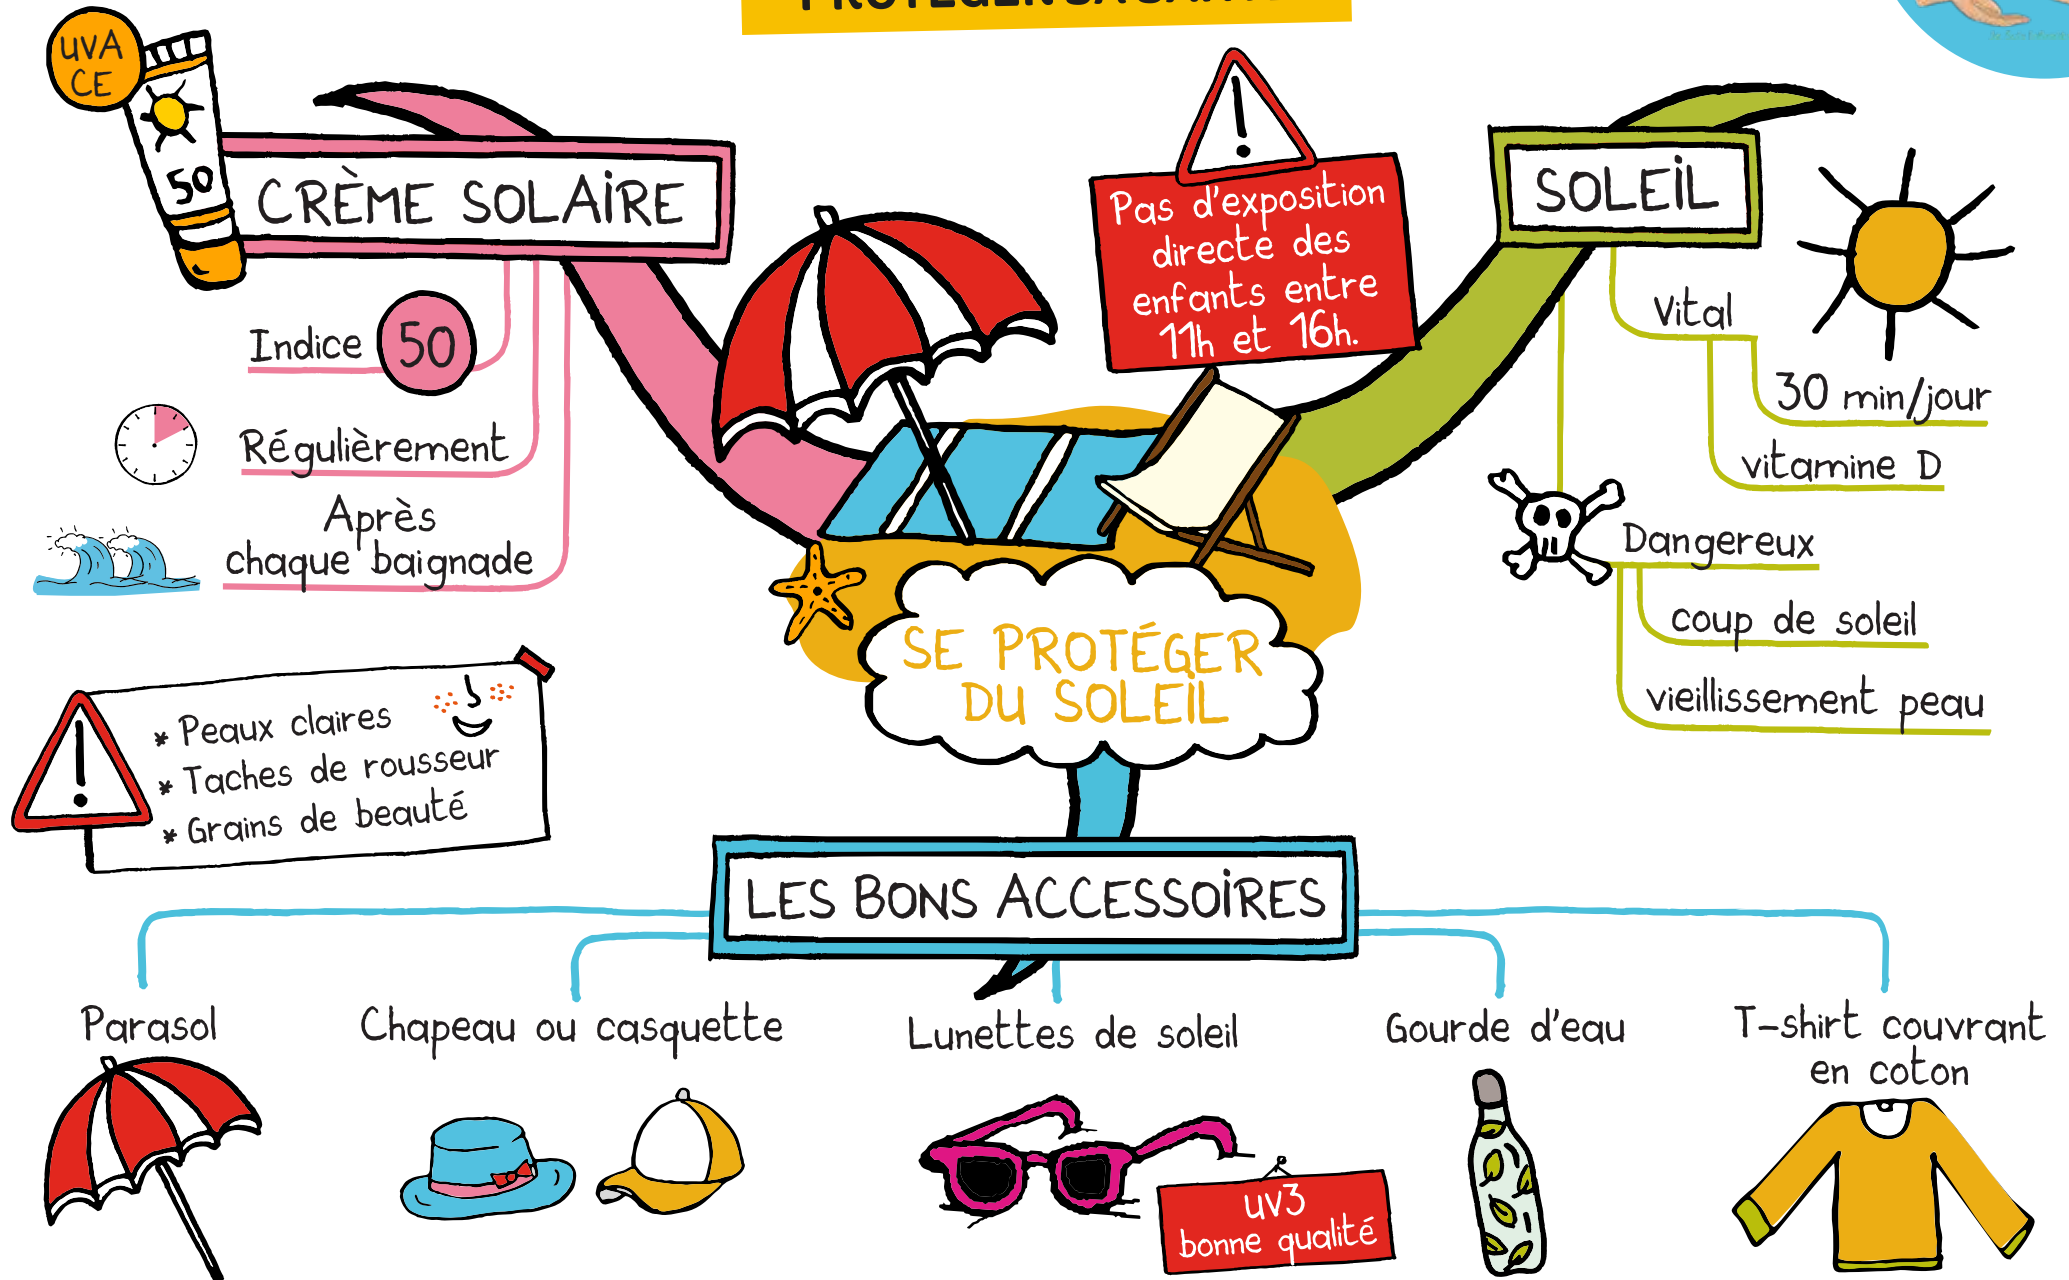 UVA
CE
50
CRÈME SOLAIRE
Indice 50
Régulièrement
Après
chaque baignade
* Peaux claires
* Taches de rousseur
* Grains de beauté
Pas d'exposition
directe des
enfants entre
11h et 16h.
SOLEIL
Vital
30 min/jour
vitamine D
Dangereux
coup de soleil
vieillissement peau
SE PROTÉGER
DU SOLEIL
LES BONS ACCESSOIRES
Parasol
Chapeau ou casquette
Lunettes de soleil
uv3
bonne qualité
Gourde d'eau
T-shirt couvrant
en coton